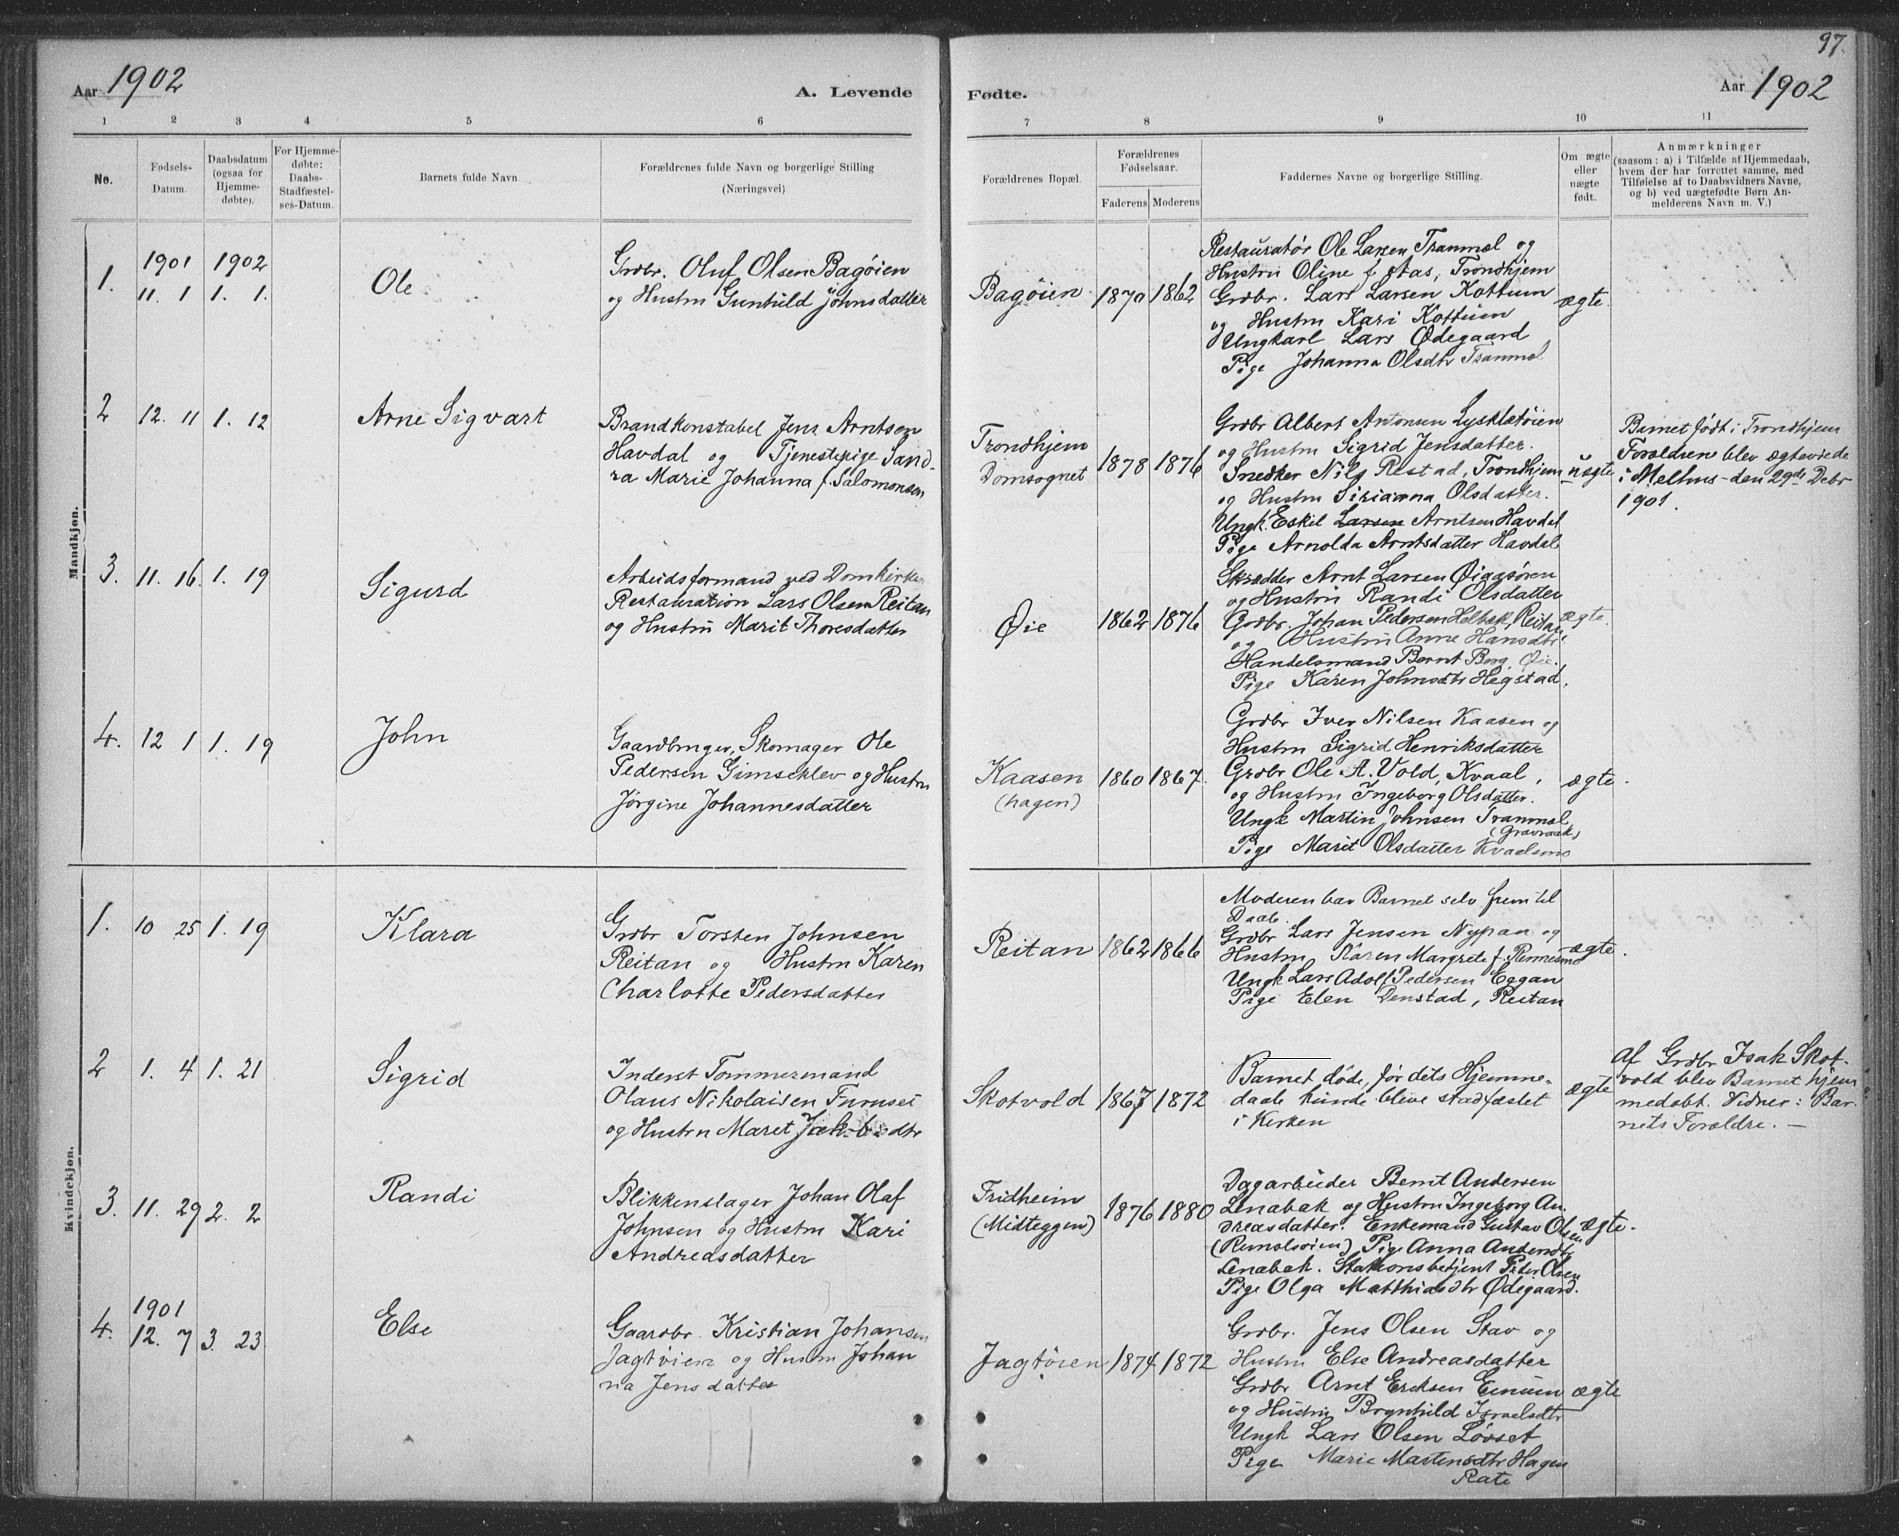 97.
Aar 1902
A. Levende
Fødte.
Aar 1902
1 2 3 4 5 6 7 8 9 10 11
No.
Fødsels-
Datum.
Daabsdatum
(ogsaa for
Hjemme-
døbte).
For Hjemme-
døbte:
Daabs-
Stadfæstel-
ses-Datum.
Barnets fulde Navn
Forældrenes fulde Navn og borgerlige Stilling
(Næringsvei).
Forældrenes Bopæl.
Forældrenes
Fødselsaar.
Faderens
Moderens
Faddernes Navne og borgerlige Stilling.
Om ægte
eller
uægte
født.
Anmærkninger
(saasom: a) i Tilfælde af Hjemmedaab,
hvem der har forrettet samme, med
Tilføielse af to Daabsvidners Navne,
og b) ved uægtefødte Børn An-
melderens Navn m. V.)
Mandkjøn.
1.
1901 1902
11. 1 1. 1.
Ole
Grdbr. Oluf Olsen Bagøien
og Hustru Gunhild Johnsdatter
Bagøien
1870
1862
Restauratør Ole Larsen Tranmæl og
Hustru Oline f. Aas, Trondhjem
Grdbr. Lars Larsen Kottum
og Hustru Kari Kottum
Ungkarl Lars Ødegaard
Pige Johanna Olsdtr Tranmæl
ægte.
2
12. 11 1. 12
Arne Sigvart
Brandkonstabel Jens Arntsen
Havdal og Tjenestepige Sand-
ra Marie Johanna f. Salomonsen
Trondhjem
Domsognet
1878
1876
Grdbr Albert Antonsen Lyskletøien
og Hustru Sigrid Jensdatter.
Snedker Nils Restad, Trondhjem
og Hustru Sirianna Olsdatter.
Ungk. Eskil Larsen Arntsen Havdal
Pige Arnolda Arntsdatter Havdal
uægte
Barnet født i Trondhjem
Forældren blev ægteviede
i Melhus den 29de Debr
1901.
3.
11. 16. 1. 19
Sigurd
Arbeidsformand ved Domkirken
Restauration Lars Olsen Reitan
og Hustru Marit Thoresdatter
Øie
1862
1876
Skrædder Arnt Larsen Øiaasøren
og Hustru Randi Olsdatter
Grdbr. Johan Pedersen Helbæk, Reitan
og Hustru Anne Hansdtr.
Handelsmand Bernt Borg, Øie.
Pige Karen Johnsdtr Hegstad.
ægte.
4.
12 1 1. 19
John
Gaardbruger, Skomager Ole
Pedersen Gimseklev og Hustru
Jørgine Johannesdatter
Kaasen
(hagen)
1860
1867.
Grdbr Iver Nilsen Kaasen og
Hustru Sigrid Henriksdatter
Grdbr Ole A. Vold, Kvaal,
og Hustru Ingeborg Olsdatter.
Ungk Martin Johnsen Tranmæl
(Gravraak)
Pige Marit Olsdatter Kvaalsmo
ægte.
Kvindekjøn.
1.
10 25 1. 19
Klara
Grdbr Torsten Johnsen
Reitan og Hustru Karen
Charlotte Pedersdatter
Reitan
1862
1866
Moderen bar Barnet selv frem til
Daab.
Grdbr Lars Jensen Nypan og
Hustru Karen Margrete f. Rennesmo
Ungk Lars Adolf Pedersen Eggan
Pige Elen Denstad, Reitan
ægte.
2
1. 4 1. 21
Sigrid
Inderst Tømmermand
Olaus Nikolaisen Furuset
og Hustru Maret Jakobsdtr
Skotvold
1867
1872
Barnet døde, før dets Hjemme-
daab kunde blive stadfæstet
i Kirken
ægte
Af Grdbr Isak Skot-
vold blev Barnet hjem
medøbt. Vidner: Bar-
nets Forældre. —
3.
11. 29 2. 2
Randi
Blikkenslager Johan Olaf
Johnsen og Hustru Kari
Andreasdatter
Fridheim
(Midteggen)
1876
1880
Dagarbeider Bernt Andersen
Lenabak og Hustru Ingeborg An-
dreasdatter. Enkemand Gustav Olsen
(Rumelsøien) Pige Anna Andersdtr
Lenabak. Stationsbetjent Peder Olsen
Pige Olga Matthiasdtr Ødegaard.
ægte.
4.
1901
12. 7 3. 23
Else
Gaardbr. Kristian Johansen
Jagtøien og Hustru Johan
na Jensdatter
Jagtøien
1874
1872
Grdbr. Jens Olsen Stav og
Hustru Else Andreasdatter
Grdbr Arnt Eriksen Eenum
og Hustru Brynhild Israelsdtr
Ungk Lars Olsen Løvset
Pige Marie Martinsdtr Hagen
Rate
ægte